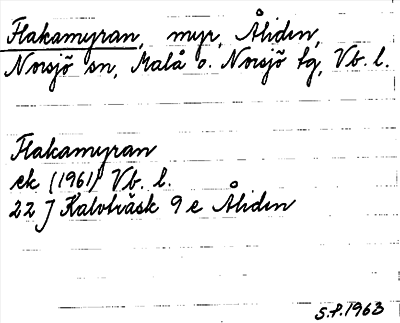 Flakamyran, myr, Åliden,
Norsjö sn, Malå o. Norsjö tg, Vb. l.
Flakamyran
ek (1961) Vb. l.
22 J Kalvträsk 9 e Åliden
S.P. 1963